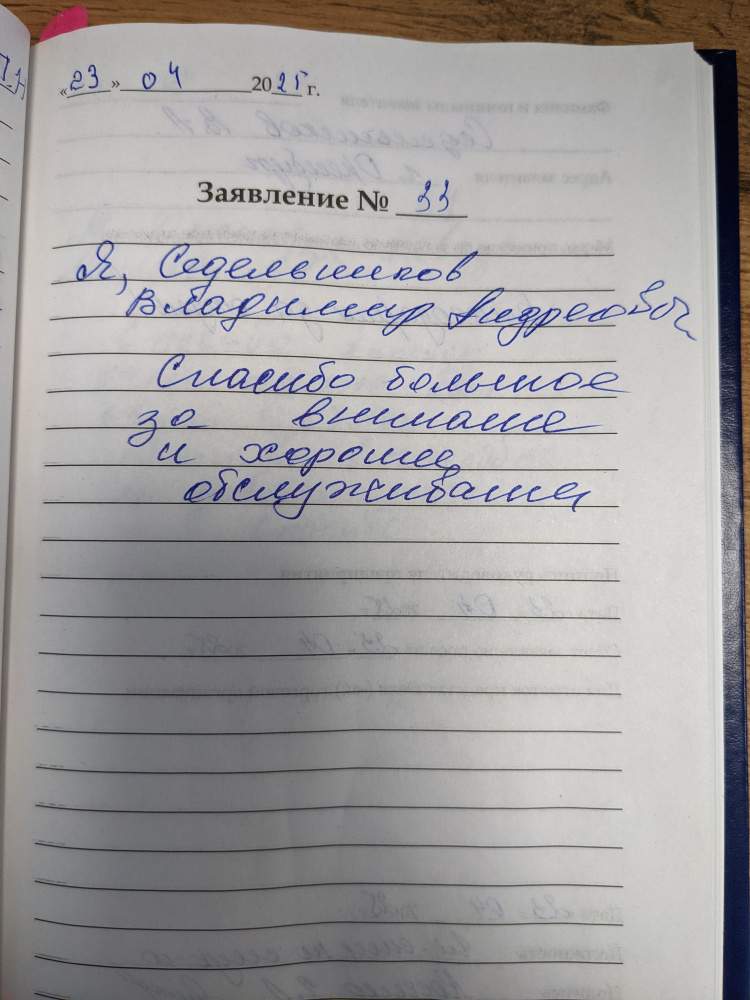 «23» 04 2025 г.
Заявление № 33
Я, Седельников
Владимир Андреевич
Спасибо большое
за внимание
и хорошее
обслуживание